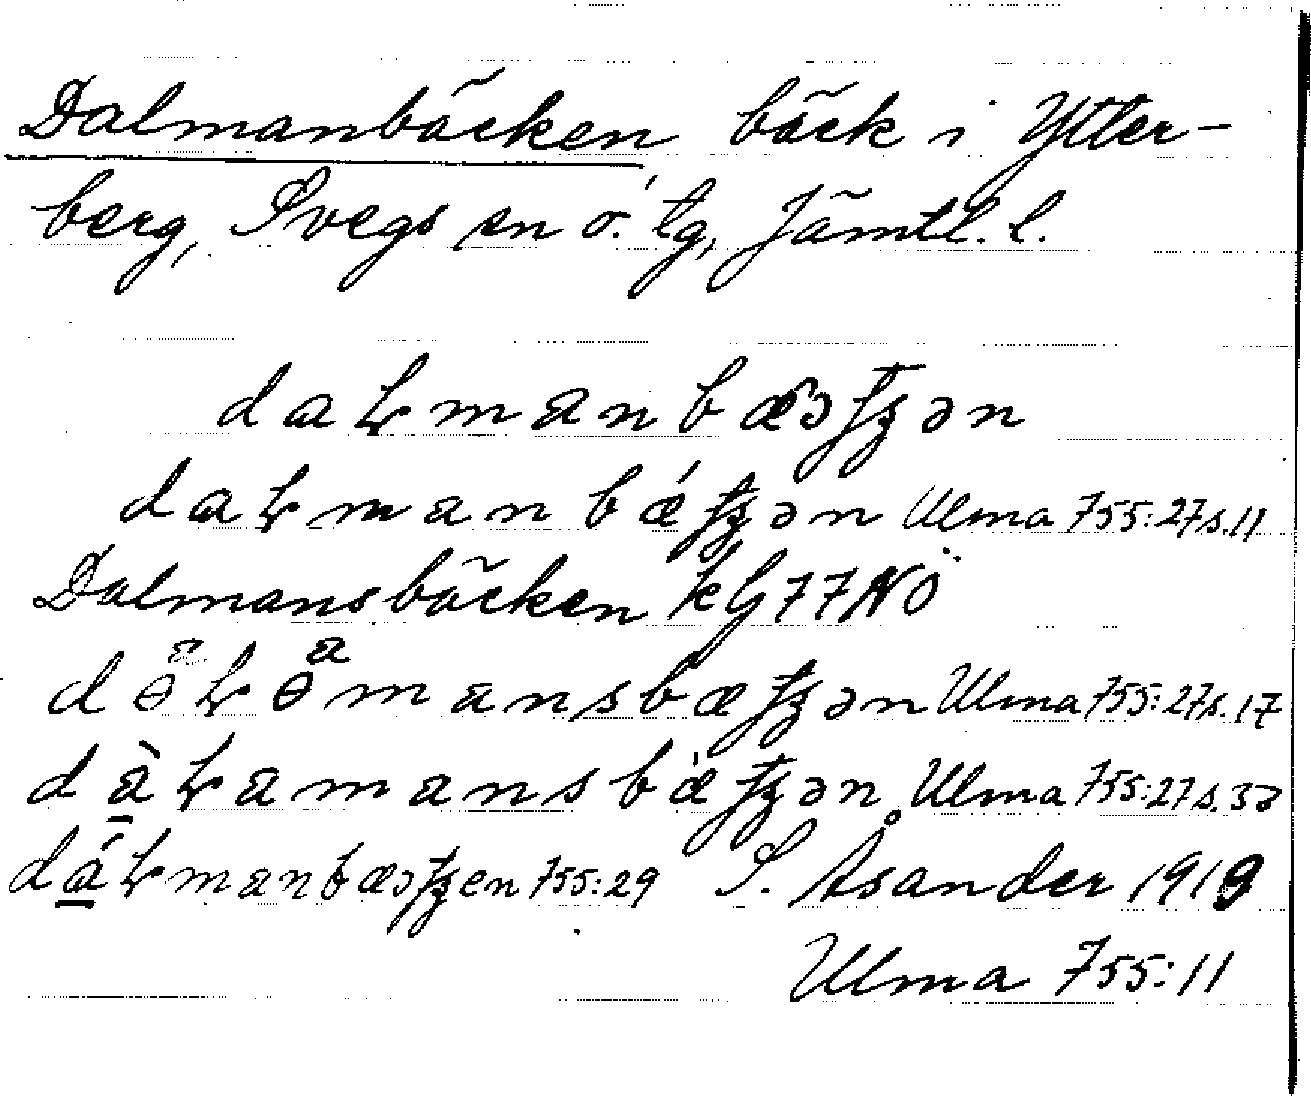 Dalmanbäcken, bäck i Ytter-
berg, Svegs sn o. tg, Jämtl. l.
daꞎmanbæəʃʒən
daꞎmanbǽʃʒən Ulma 755:27 s. 11
Dalmansbäcken kG77NÖ
mansbæʃʒən Ulma 755:27 s. 17
dàꞎamansbǽʃʒən Ulma 755:27 s. 32
dáꞎmanbæəʃʒen 755:29 S. Åsander 1919
Ulma 755:11